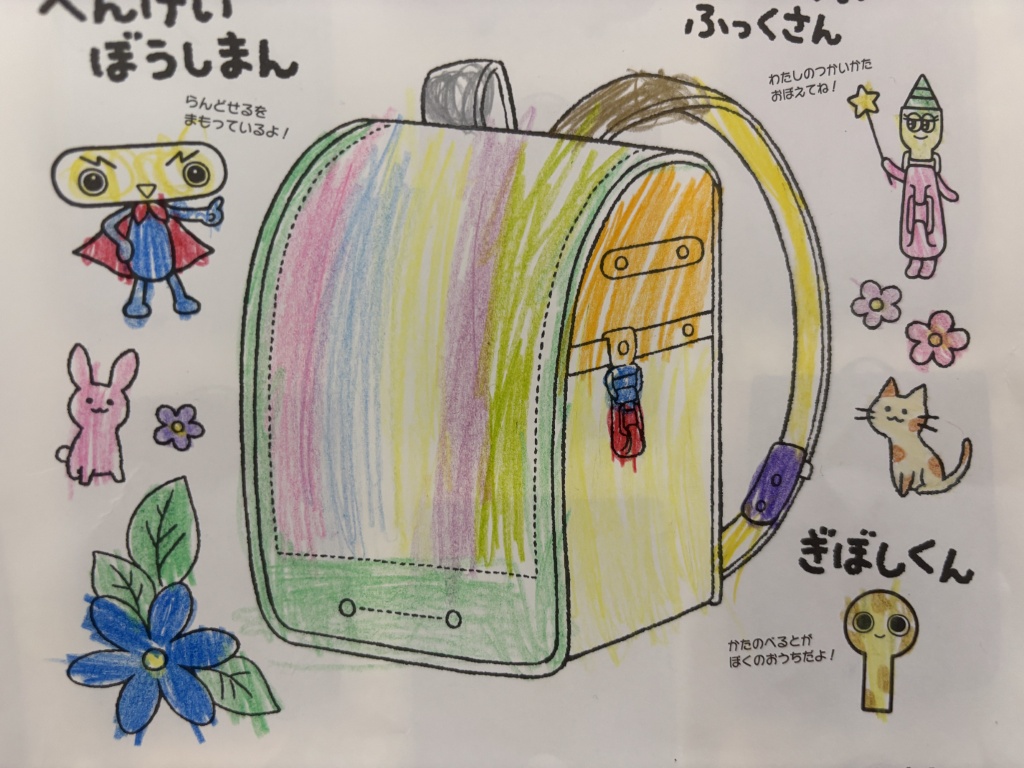 へんけい
ぼうしまん
らんどせるを
まもっているよ!
ふっくさん
わたしのつかいかた
おぼえてね!
ぎぼしくん
かたのべるとが
ぼくのおうちだよ!